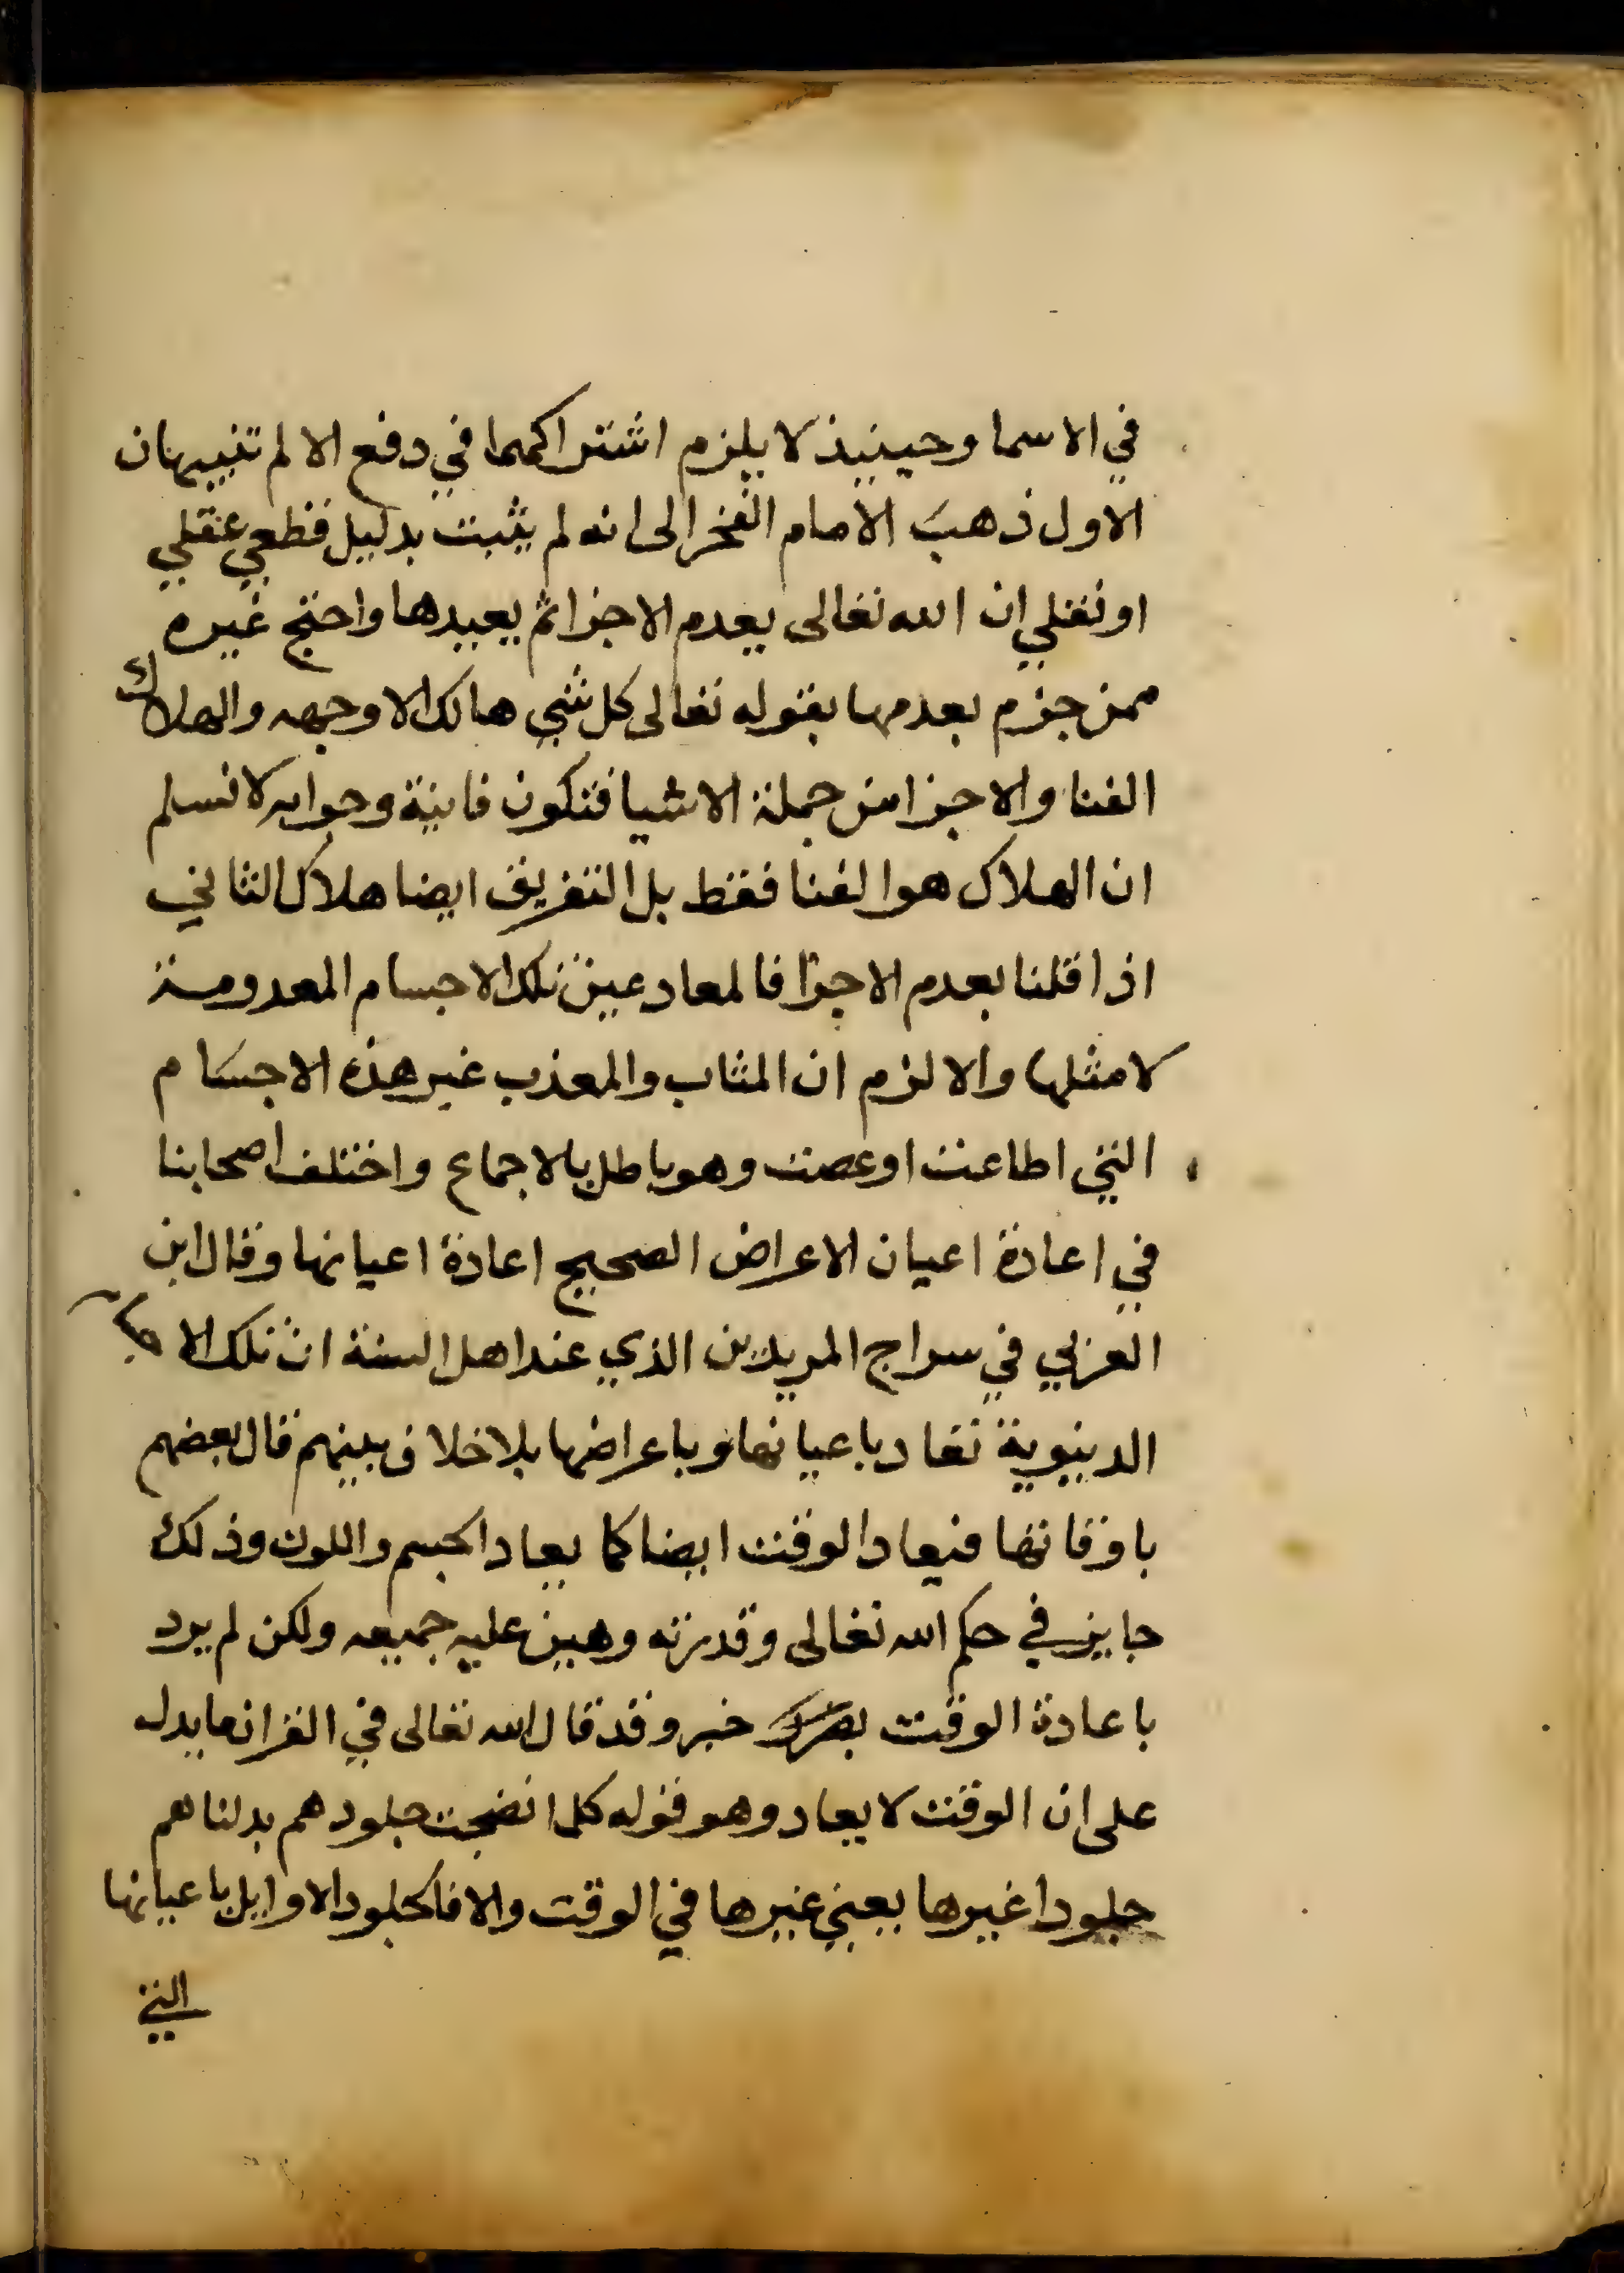 في الاسما وحينيذ لا يلزم اشتراكهما في دفع الالم تنبيهان
الاول ذهب الامام الفخر الى انه لم يثبت بدليل قطعي عقلي
او نقلي ان الله تعالى يعدم الاجزا ثم يعيدها واحتج غيره
ممن جزم بعدمها بقوله تعالى كل شي هالك الا وجهه والهلاك
الفنا والاجزا من جملة الاشيا فتكون فانية وجوابه لا نسلم
ان الهلاك هو الفنا فقط بل التفريق ايضا هلاك الثاني
اذا قلنا بعدم الاجزا فالمعاد عين تلك الاجسام المعدومة
لا مثلها والا لزم ان المثاب والمعذب غير هذه الاجسام
التي اطاعت او عصت وهو باطل بالاجماع واختلف اصحابنا
في اعادة اعيان الاعراض الصحيح اعادة اعيانها وقال ابن
العربي في سراج المريدين الذي عند اهل السنة ان تلك الا
الدنيوية تعاد باعيانها وباعراضها بلا خلاف بينهم قال بعضهم
باوقاتها فيعاد الوقت ايضا كما يعاد الجسم واللون وذلك
جايز في حكم الله تعالى وقدرته وهين عليه جميعه ولكن لم يرد
باعادة الوقت خبر وقد قال الله تعالى في القران ما يدل
على ان الوقت لا يعاد وهو قوله كلما نضجت جلودهم بدلناهم
جلودا غيرها يعني غيرها في الوقت والا فالجلود الاوايل باعيانها
التي